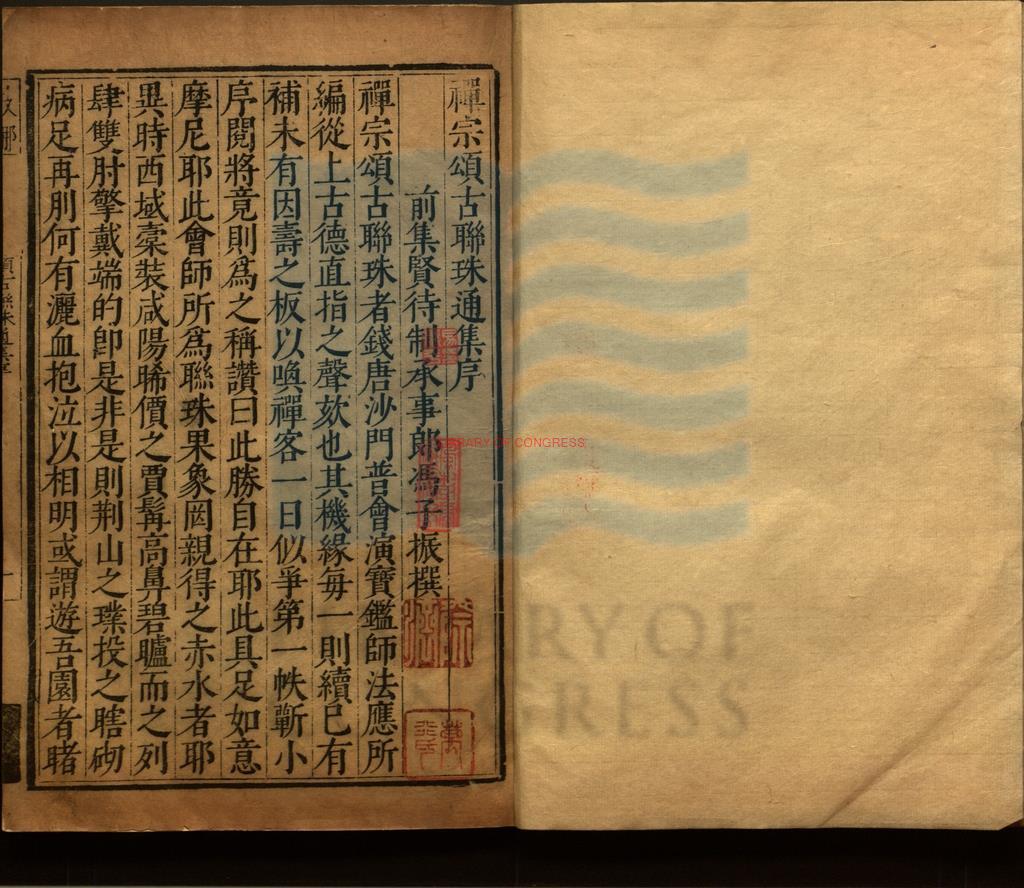 禪宗頌古聯珠通集序
前集賢待制承事郎馮子振撰
禪宗頌古聯珠者錢唐沙門普會演寶鑑師法應所
編從上古德直指之聲欬也其機緣每一則續已有
補未有因壽之板以喚禪客一日似爭第一帙蘄小
序閱將竟則爲之稱讚曰此勝自在耶此具足如意
摩尼耶此會師所爲聯珠果象罔親得之赤水者耶
異時西域橐裝咸陽晞價之賈髯高鼻碧矑而之列
肆雙肘擎戴端的卽是非是則荆山之璞投之瞎砌
病足再刖何有灑血抱泣以相明或謂遊吾園者睹
LIBRARY OF CONGRESS
RY OF
GRESS